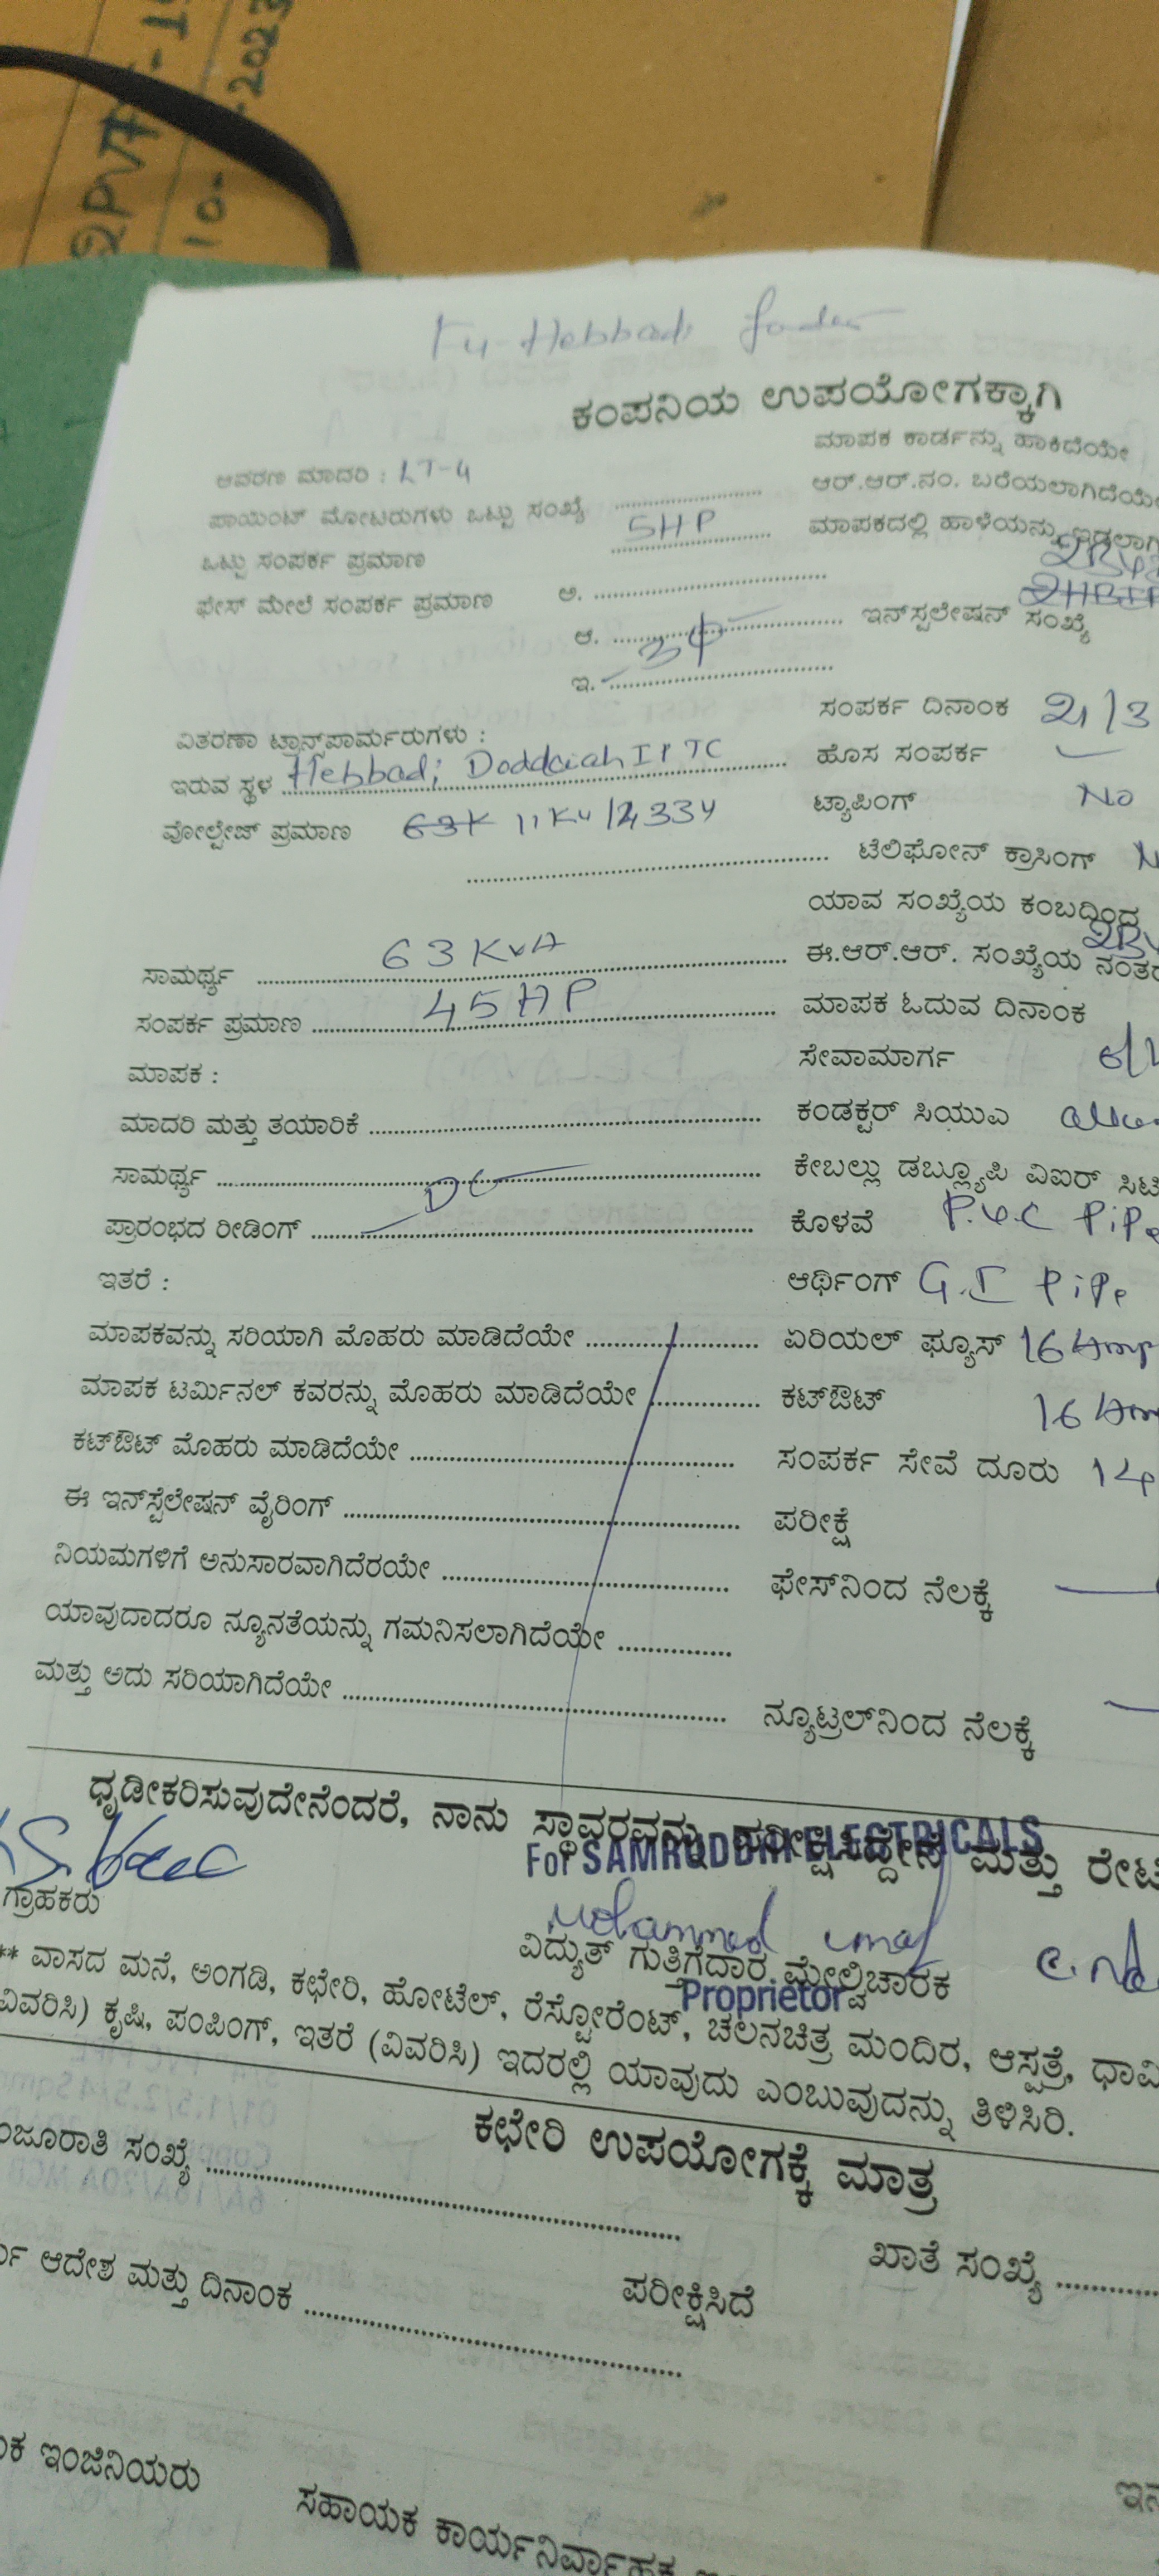 10- -2023
F4 Hebbadi
ಕಂಪನಿಯ ಉಪಯೋಗಕ್ಕಾಗಿ
ಆವರಣ ಮಾದರಿ : LT-4 ಮಾಪಕ ಕಾರ್ಡನ್ನು ಹಾಕಿದೆಯೇ
ಪಾಯಿಂಟ್ ಮೋಟರುಗಳು ಒಟ್ಟು ಸಂಖ್ಯೆ .................... ಆರ್.ಆರ್.ನಂ. ಬರೆಯಲಾಗಿದೆಯೇ
ಒಟ್ಟು ಸಂಪರ್ಕ ಪ್ರಮಾಣ 5HP ಮಾಪಕದಲ್ಲಿ ಹಾಳೆಯನ್ನು ಇಡಲಾಗಿ
ಫೇಸ್ ಮೇಲೆ ಸಂಪರ್ಕ ಪ್ರಮಾಣ ಅ. ....................
ಆ. .................... ಇನ್‌ಸ್ಟಲೇಷನ್ ಸಂಖ್ಯೆ
ಇ. 3ϕ
ಸಂಪರ್ಕ ದಿನಾಂಕ 21/3
ವಿತರಣಾ ಟ್ರಾನ್ಸ್‌ಪಾರ್ಮರುಗಳು :
ಇರುವ ಸ್ಥಳ Hebbadi Doddaiah IP TC ಹೊಸ ಸಂಪರ್ಕ
ವೋಲ್ಟೇಜ್ ಪ್ರಮಾಣ 63K 11Kv/ ಟ್ಯಾಪಿಂಗ್ No
.................... ಟೆಲಿಫೋನ್ ಕ್ರಾಸಿಂಗ್ N
ಯಾವ ಸಂಖ್ಯೆಯ ಕಂಬದಿಂದ
ಸಾಮರ್ಥ್ಯ 63 KvA ಈ.ಆರ್.ಆರ್. ಸಂಖ್ಯೆಯ ನಂತರ
ಸಂಪರ್ಕ ಪ್ರಮಾಣ 45 HP ಮಾಪಕ ಓದುವ ದಿನಾಂಕ
ಮಾಪಕ : ಸೇವಾಮಾರ್ಗ
ಮಾದರಿ ಮತ್ತು ತಯಾರಿಕೆ .................... ಕಂಡಕ್ಟರ್ ಸಿಯುಎ
ಸಾಮರ್ಥ್ಯ .................... ಕೇಬಲ್ಲು ಡಬ್ಲ್ಯೂಪಿ ವಿಐರ್ ಸಿಟಿ
ಪ್ರಾರಂಭದ ರೀಡಿಂಗ್ DC ಕೊಳವೆ P.V.C Pipe
ಇತರೆ : ಆರ್ಥಿಂಗ್ G.I Pipe
ಮಾಪಕವನ್ನು ಸರಿಯಾಗಿ ಮೊಹರು ಮಾಡಿದೆಯೇ .................... ಏರಿಯಲ್ ಫ್ಯೂಸ್ 16 Amp
ಮಾಪಕ ಟರ್ಮಿನಲ್ ಕವರನ್ನು ಮೊಹರು ಮಾಡಿದೆಯೇ .................... ಕಟ್‌ಔಟ್ 16 Am
ಕಟ್‌ಔಟ್ ಮೊಹರು ಮಾಡಿದೆಯೇ .................... ಸಂಪರ್ಕ ಸೇವೆ ದೂರು 14
ಈ ಇನ್‌ಸ್ಟೆಲೇಷನ್ ವೈರಿಂಗ್ .................... ಪರೀಕ್ಷೆ
ನಿಯಮಗಳಿಗೆ ಅನುಸಾರವಾಗಿದೆರಯೇ .................... ಫೇಸ್‌ನಿಂದ ನೆಲಕ್ಕೆ
ಯಾವುದಾದರೂ ನ್ಯೂನತೆಯನ್ನು ಗಮನಿಸಲಾಗಿದೆಯೇ ....................
ಮತ್ತು ಅದು ಸರಿಯಾಗಿದೆಯೇ .................... ನ್ಯೂಟ್ರಲ್‌ನಿಂದ ನೆಲಕ್ಕೆ
ಧೃಡೀಕರಿಸುವುದೇನೆಂದರೆ, ನಾನು ಸ್ಥಾವರವನ್ನು ಪರೀಕ್ಷಿಸಿದ್ದೇನೆ ಮತ್ತು ರೇಟಿ
For SAMRUDDHI ELECTRICALS
Mohammed
ಗ್ರಾಹಕರು ವಿದ್ಯುತ್ ಗುತ್ತಿಗೆದಾರ ಮೇಲ್ವಿಚಾರಕ
Proprietor
** ವಾಸದ ಮನೆ, ಅಂಗಡಿ, ಕಛೇರಿ, ಹೋಟೆಲ್, ರೆಸ್ಟೋರೆಂಟ್, ಚಲನಚಿತ್ರ ಮಂದಿರ, ಆಸ್ಪತ್ರೆ, ಧಾರ್ಮಿ
ವಿವರಿಸಿ) ಕೃಷಿ, ಪಂಪಿಂಗ್, ಇತರೆ (ವಿವರಿಸಿ) ಇದರಲ್ಲಿ ಯಾವುದು ಎಂಬುವುದನ್ನು ತಿಳಿಸಿರಿ.
ಕಛೇರಿ ಉಪಯೋಗಕ್ಕೆ ಮಾತ್ರ
ಂಜೂರಾತಿ ಸಂಖ್ಯೆ .................... ಖಾತೆ ಸಂಖ್ಯೆ ..........
ಆದೇಶ ಮತ್ತು ದಿನಾಂಕ .................... ಪರೀಕ್ಷಿಸಿದೆ
ಇಂಜಿನಿಯರು ಸಹಾಯಕ ಕಾರ್ಯನಿರ್ವಾಹಕ